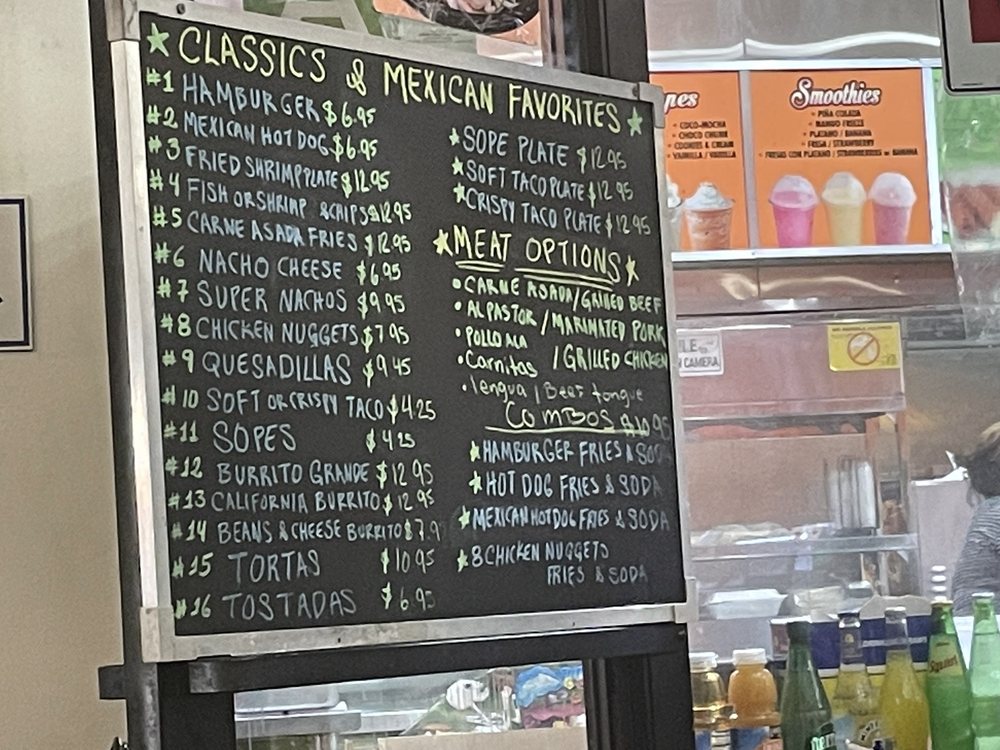 CLASSICS & MEXICAN FAVORITES
#1 HAMBURGER $6.95
#2 MEXICAN HOT DOG $6.95
#3 FRIED SHRIMP PLATE $12.95
#4 FISH OR SHRIMP & CHIPS $12.95
#5 CARNE ASADA FRIES $12.95
#6 NACHO CHEESE $6.95
#7 SUPER NACHOS $9.95
#8 CHICKEN NUGGETS $7.95
#9 QUESADILLAS $9.45
#10 SOFT OR CRISPY TACO $4.25
#11 SOPES $4.25
#12 BURRITO GRANDE $12.95
#13 CALIFORNIA BURRITO $12.95
#14 BEANS & CHEESE BURRITO $7.9
#15 TORTAS $10.95
#16 TOSTADAS $6.95
SOPE PLATE $12.95
SOFT TACO PLATE $12.95
CRISPY TACO PLATE $12.95
MEAT OPTIONS
CARNE ASADA/GRILLED BEEF
AL PASTOR / MARINATED PORK
POLLO ALA
/ GRILLED CHICKEN
Carnitas
lengua / Beef tongue
COMBOS $10.95
HAMBURGER FRIES & SODA
HOT DOG FRIES & SODA
MEXICAN HOT DOG FRIES & SODA
8 CHICKEN NUGGETS
FRIES & SODA
pes
COCO-MOCHA
CHOCO CHERRI
COOKIES & CREAM
VAINILLA / VANILLA
Smoothies
PIÑA COLADA
MANGO FREEZE
PLATANO / BANANA
FRESA / STRAWBERRY
FRESAS CON PLATANO / STRAWBERRIES w BANANA
ILE
CAMERA
Squirt